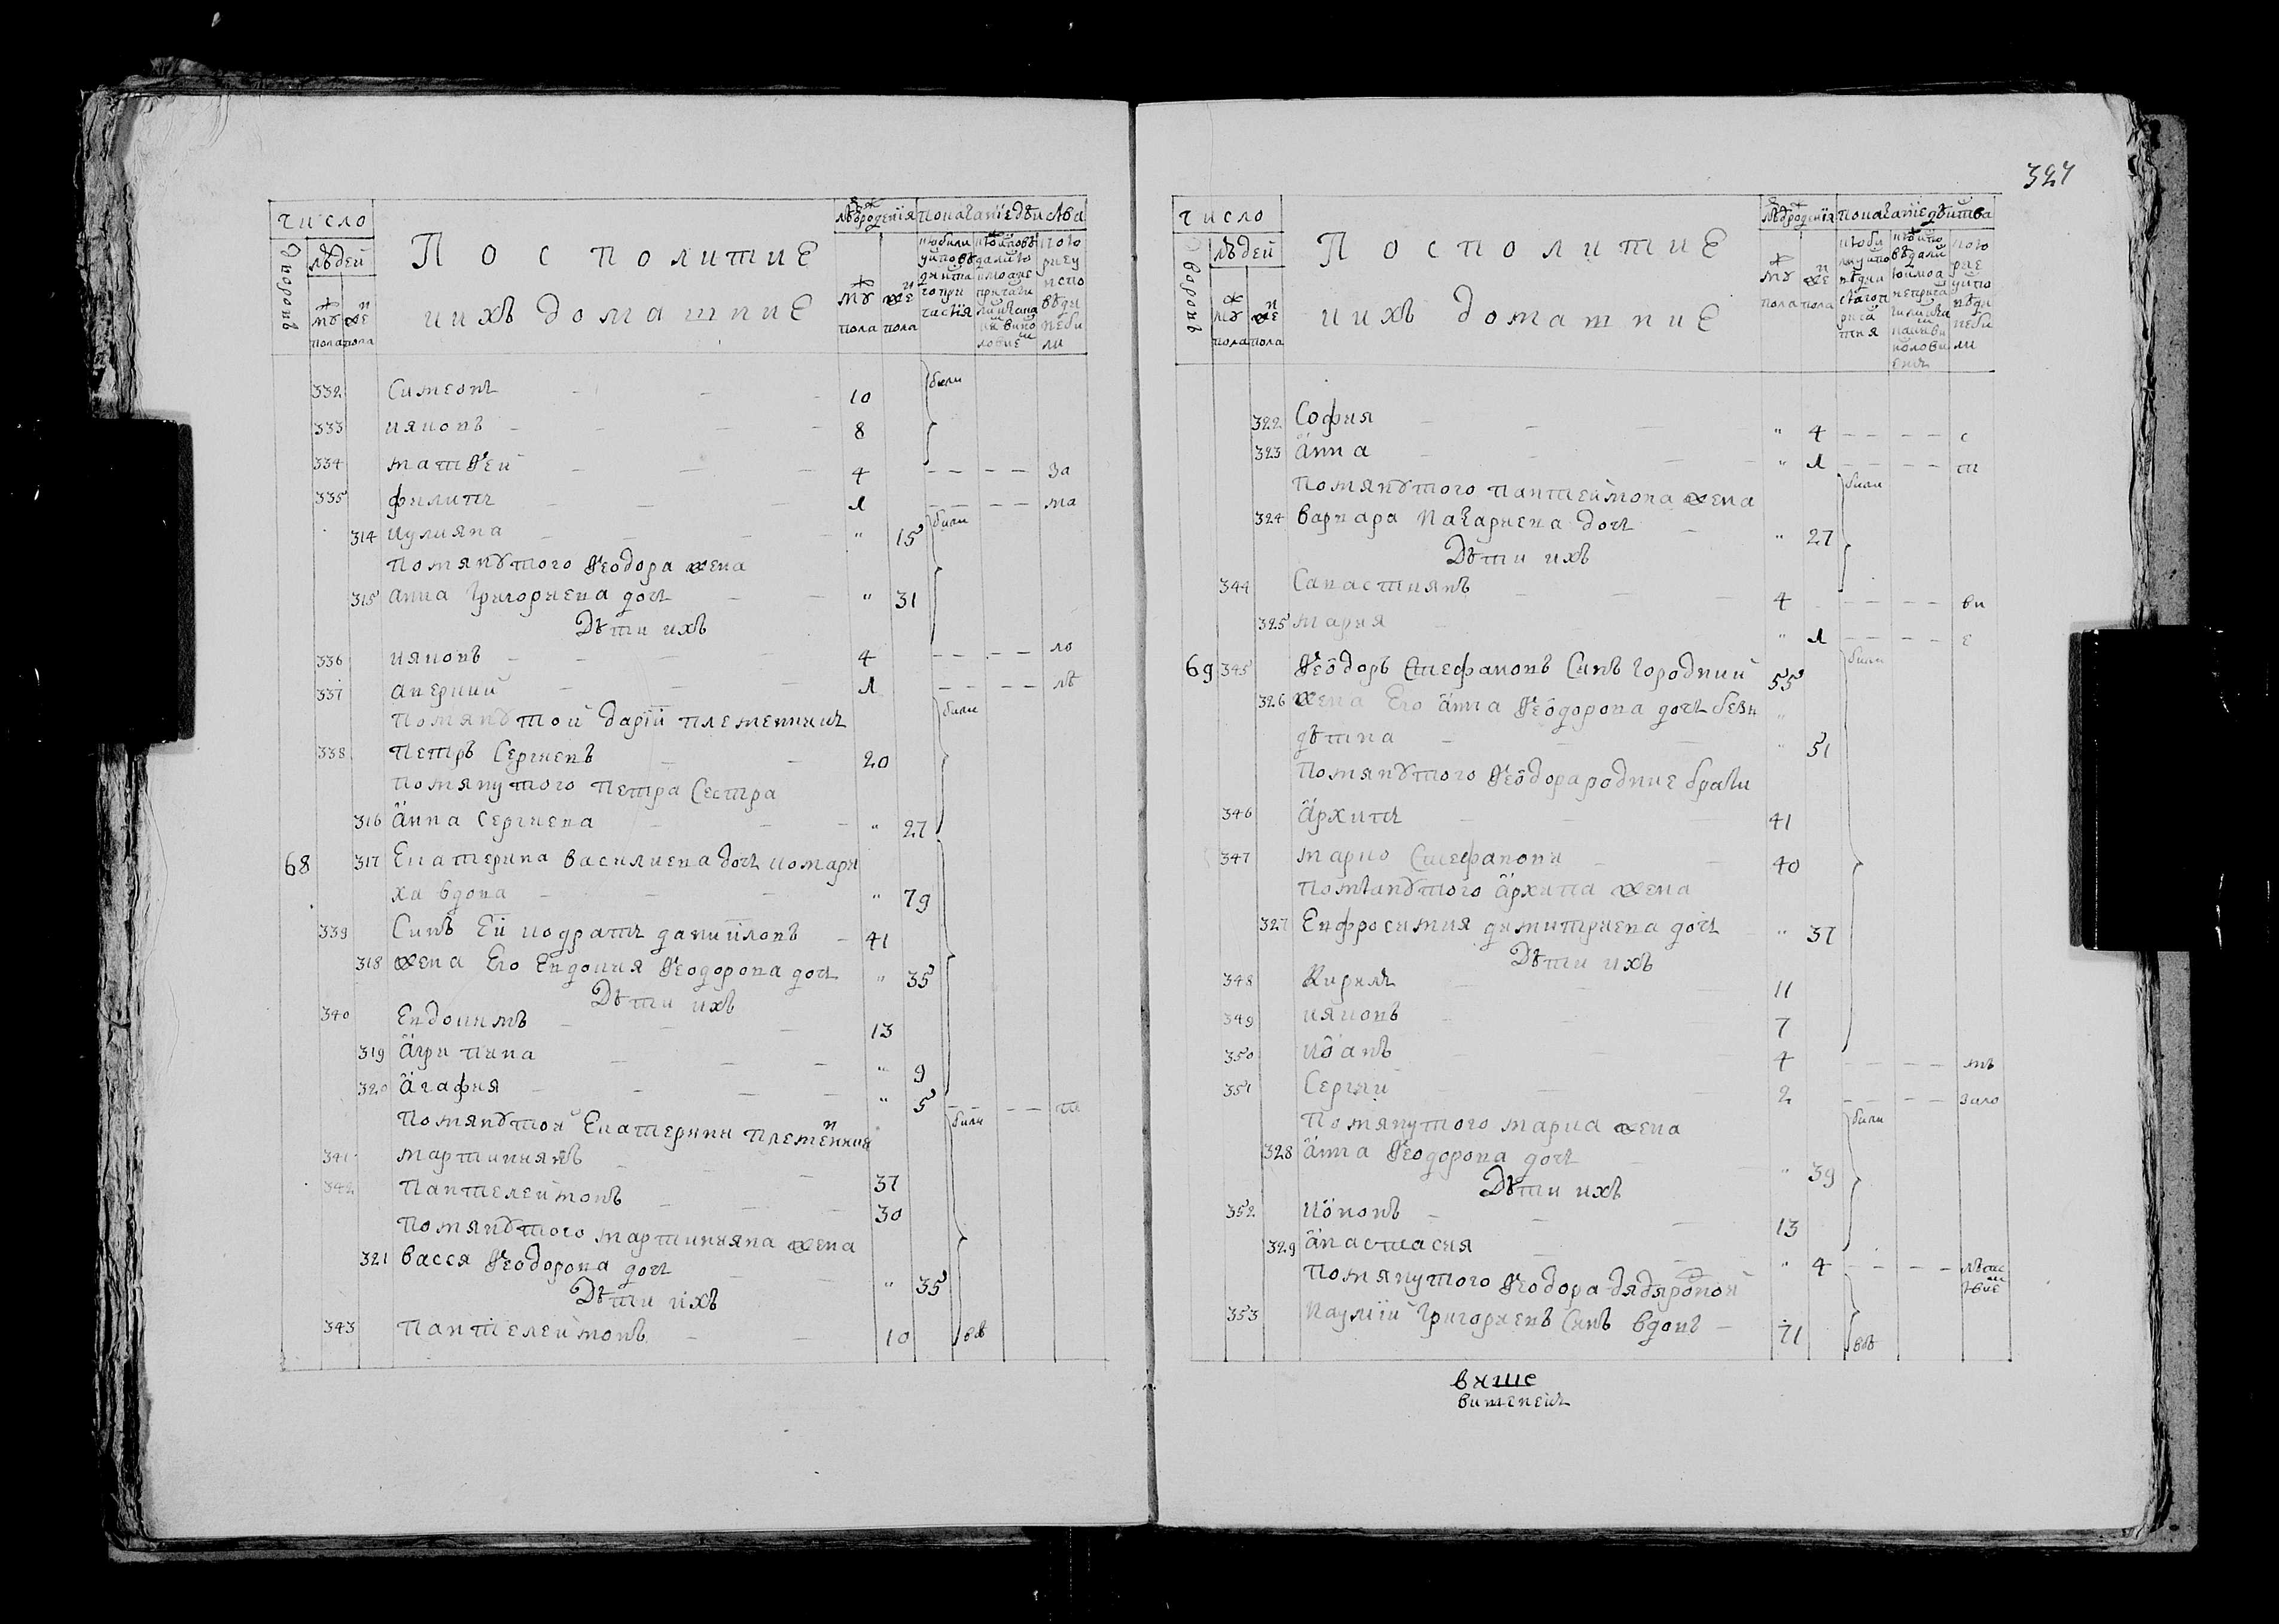 число
Дворовъ
людей
муж пола
жен пола
Посполитие
и ихъ домашние
лѣ от рождения
муж пола
жен пола
показание действа
332 Симеонъ — — — 10 били
333 Ияковъ — — — 8
334 Матфей — — — 4 — — — — за
335 Филипъ — — — 1 — — — — ма
314 Иулияна — — — " 15 били
Помянутого Феодора жена
315 Анна Григориева дочъ — — " 31
Дѣти ихъ
336 Ияковъ — — — 4 — — — — ло
337 Аверкий — — — 1 — — — — лѣ
Помянутой Дарїи племенникъ били
338 Петръ Сергиевъ — — 20
Помянутого Петра сестра
316 Анна Сергиева — — — " 27
68 317 Екатерина Василиева дочъ комари
ха вдова — — — " 79
339 Синъ Еи Кодратъ Данийловъ — 41
318 жена Его Евдокия Феодорова дочъ " 35
Дѣти ихъ
340 Евдокимъ — — — 13
319 Агрипина — — — " 9
320 Агафия — — — " 5 — — — — т
Помянутой Екатерини племенники били
341 Мартиниянъ — — 37
342 Пантелеймонъ — — — 30
Помянутого Мартинияна жена
321 Васса Феодорова дочъ — — " 35
Дѣти ихъ
343 Пантелеймонъ — — 10
324
число
Дворовъ
людей
муж пола
жен пола
Посполитие
и ихъ домашние
лѣ от рождения
муж пола
жен пола
показание действа
322 София — — — " 4 — — — — с
323 Анна — — — " 1 — — — — т
Помянутого Пантеймона жена били
324 Варвара Макариева дочъ — " 27
Дѣти ихъ
344 Савастиянъ — — — 4 — — — — ви
325 Мария — — — " 1 — — — — е
69 345 Феодоръ Стефановъ Синъ Городний 55 били
326 жена Его Анна Феодорова дочъ безъ
дѣтна — — — " 51
Помянутого Феодора родние брати
346 Архипъ — — — 41
347 Марко Стефанови — — 40
Помянутого Архипа жена
327 Евфросимия Димитриева дочъ — " 37
Дѣти ихъ
348 Кирилъ — — — 11
349 Ияковъ — — — 7
350 Иоанъ — — — 4 — — — — мъ
351 Сергий — — — 2 — — — — зало
Помянутого Марка жена били
328 Анна Феодорова дочъ — — " 39
Дѣти ихъ
352 Кононъ — — — 13
329 Анастасия — — — " 4 — — — —
Помянутого Феодора дядя родной
353 Наумїй Григориевъ Синъ вдовъ — 71
више